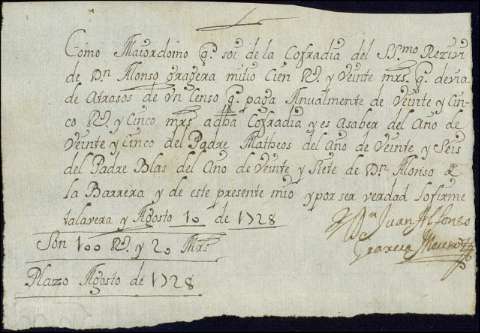 Como Maiordomo q. soi de la Cofradia del SSmo Rezivi
de Dn Alonso gragera midio Cien Rs. y Veinte mrs. q. devia
de Atrasos de Un Censo q. paga Anualmente de Veinte y Cin
co Rs. y Cinco mrs a dha Cofradia y es asaber del Año de
Veinte y Cinco del Padre Matheos del Año de Veinte y Seis
del Padre Blas del Año de Veinte y Siete de Dn. Alonso de
la Barrera y de este presente mio y por ser verdad lo firme
talavera y Agosto 10 de 1728
Juan Alfonso
Garcia Moreno
Son 100 Rs. y 20 Mrs
Plazo Agosto de 1728